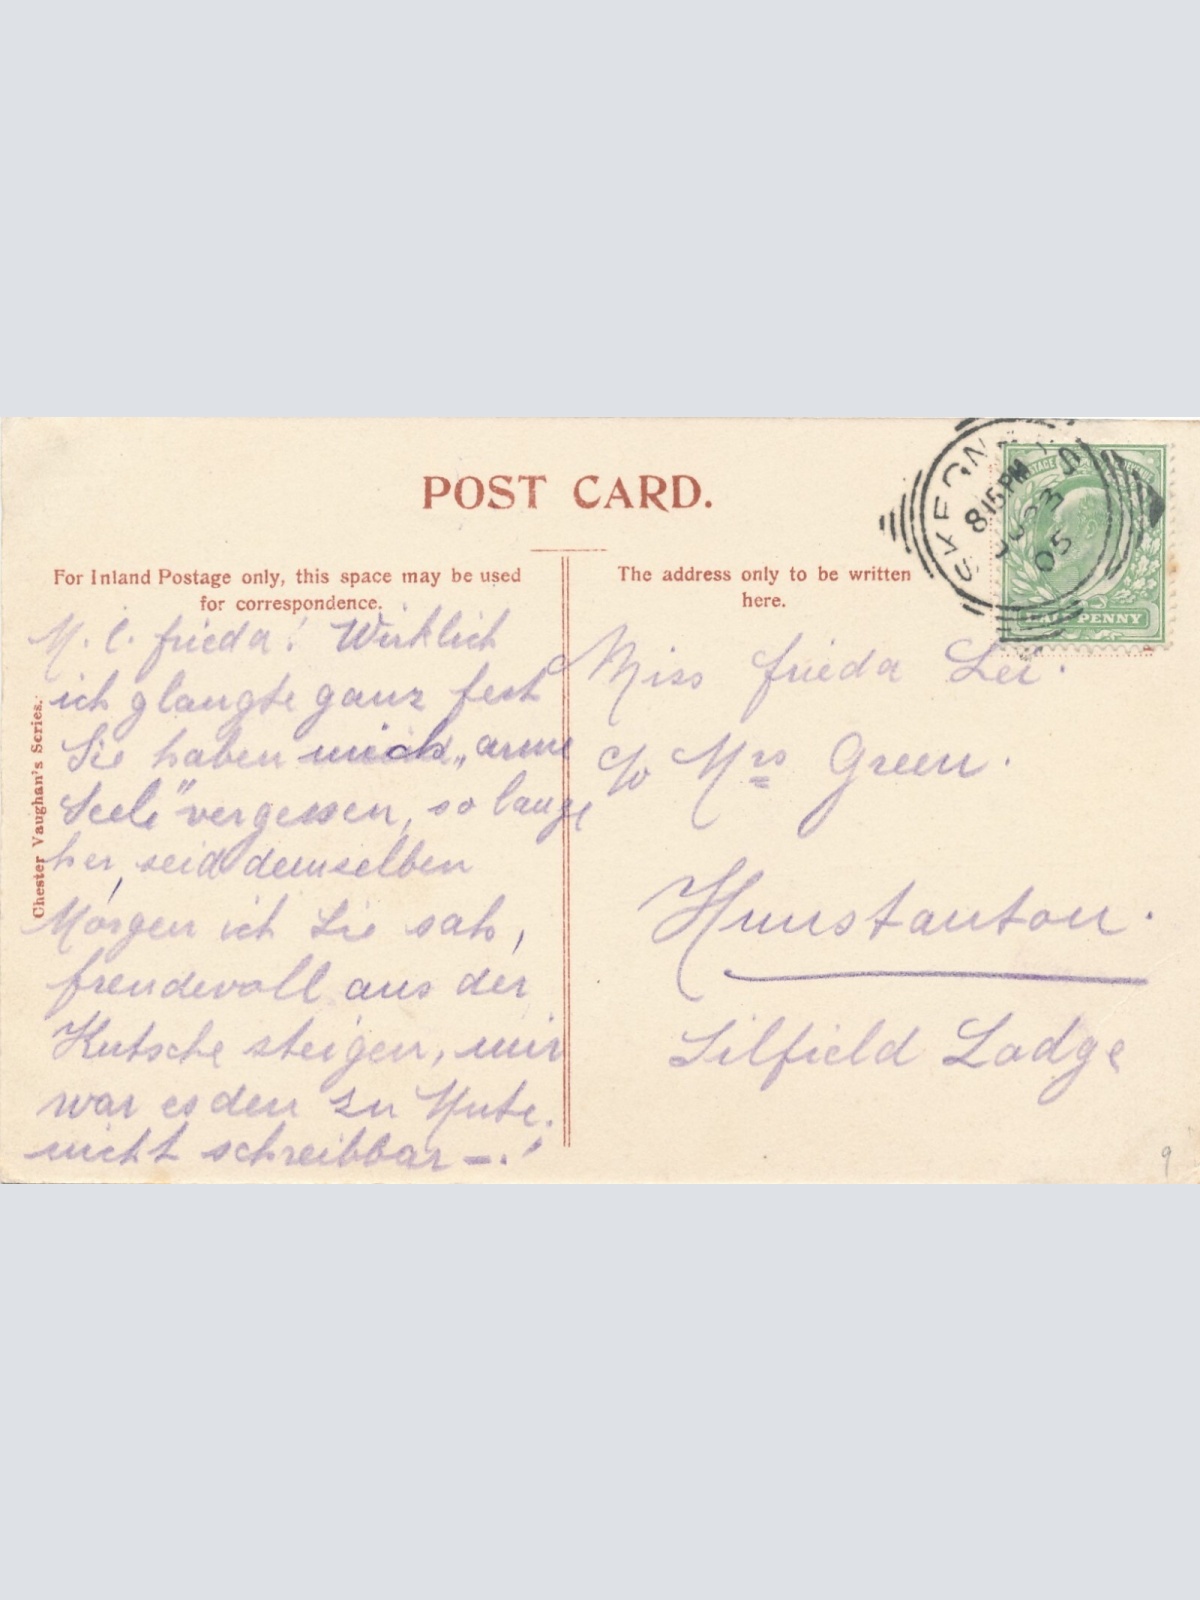 POST CARD.
For Inland Postage only, this space may be used
for correspondence.
The address only to be written
here.
Chester Vaughan's Series.
M. l. Frieda! Wirklich
ich glaugte ganz fest
Sie haben mich „arme
Seele" vergessen, so lange
her, seid demselben
Morgen ich Sie sah,
freudevoll aus der
Kutsche steigen, mir
war es den zu Mute.
nicht schreibbar –.'
Miss Frieda Lei.
c/o Mrs Green.
Hunstanton.
Silfield Lodge
8.15 PM
05
HALF PENNY
9